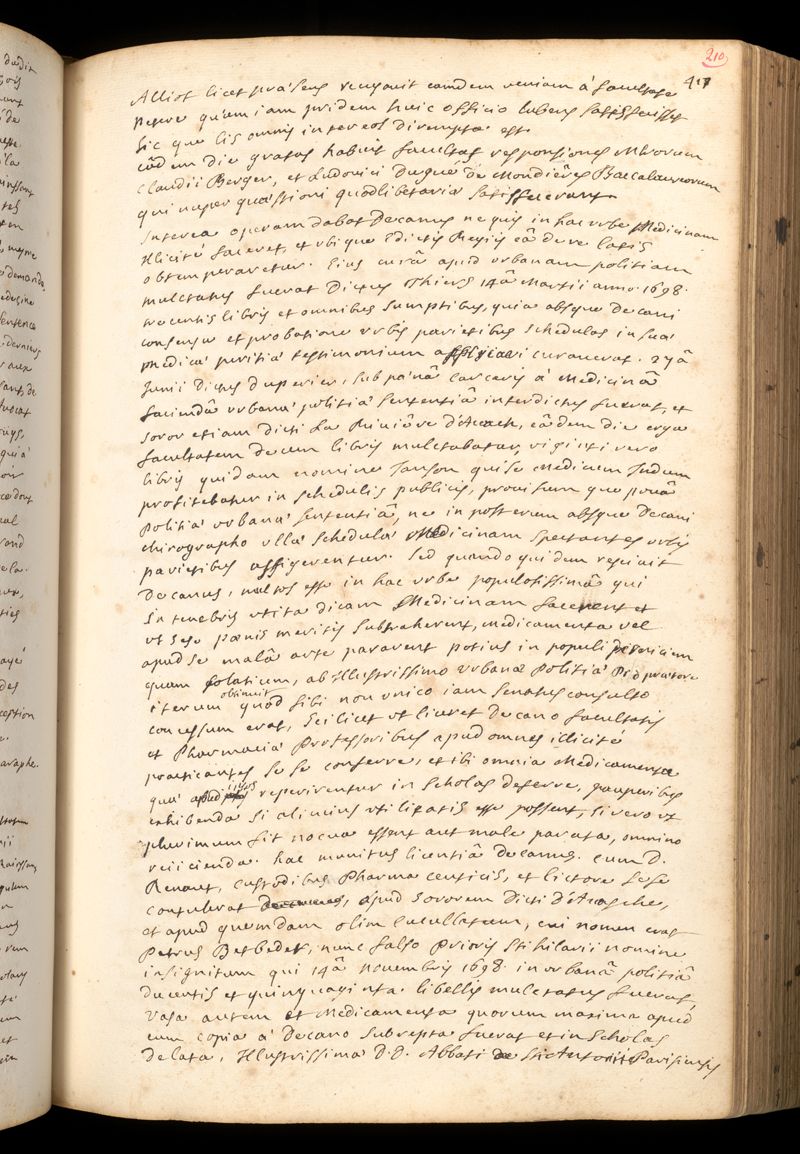 210
417
Alliot licet præsens renuavit eamdem veniam á facultate
petere quam iam pridem huic officio lubens satisfecisset
sic que lis omnis intereos dirempta est.
eâdem die gratas habuit facultas responsiones Mrorum
Claudii Berger, et Ludovici Duguè de Mondiêres Baccalaureorum
qui nuper quæstioni quodlibetariæ satisfecerunt
Interea operam dabat Decanus ne quis in hac urbe Medicinam
Illicitè faceret, et ubique Edictis Regiis eâ de re latis
obtemperaretur. Eius curâ apud urbanam politiam
mulctatus fuerat Dictus Thiers 14â Martii anno 1698.
trecentis libris et omnibus sumptibus, quia absque Decani
consensu et probatione urbis parietibus schedulas in suâ
medicâ peritiâ testimonium affigi curaverat. 27â
Junii Dictus duperier, sub pœnâ carceris á Medicinâ
faciendâ urbanæ politiæ sententiâ interdictus fuerat, et
soror etiam dicti La Riviére d'Arach, eâdem die erga
facultatem decem libris mulctabatur, viginti vero
libris quidam nomine Janson qui se Medicum Indum
profitebatur in schedulis publicis, provisum que pœnâ
politiæ urbanæ sententiâ, ne in posterum absque Decani
chirographo ulla schedula Medicinam spectantes urbis
parietibus affigerentur. Sed quando quidem rescivit
Decanus, multos esse in hac urbe populosissimâ qui
In tenebris ut ita dicam Medicinam facerent et
ut sese pœnis meritis subtraherent, medicamenta vel
apud se malâ arte pararent potius in populi perniciem
quam solatium, ab Illustrissimo urbanæ politiæ Proprætore
iterum obtinuit quod sibi non unico iam senatus consulto
concessum erat, scilicet ut liceret Decano facultatis
et Pharmaciæ Professoribus apud omnes illicitè
practicantes se se conferre, et ibi omnia Medicamenta
quæ apud illos reperirentur in scholas deferre, pauperibus
exhibenda si alicuius utilitatis esse possent, si vero ut
plurimum fit nocua essent aut male parata, omnino
reiicienda. hac munitus licentiâ decanus. cum D.
Renaut, custodibus Pharmaceuticis, et lictore sese
contulerat, apud sororem Dicti d'Arache,
et apud quemdam olim cucullatum, cui nomen erat
Petrus Betbeder, nunc falso Prioris sti hilarii nomine
insignitum qui 14â novembris 1698. in urbanâ politiâ
ducentis et quinquaginta libellis mulctatus fuerat,
vasa autem et Medicamenta quorum maxima apud
eum copia á Decano subrepta fuerat et in Scholas
delata, Illustrissimâ D.D. Abbati Sti Antonii Parisiensis